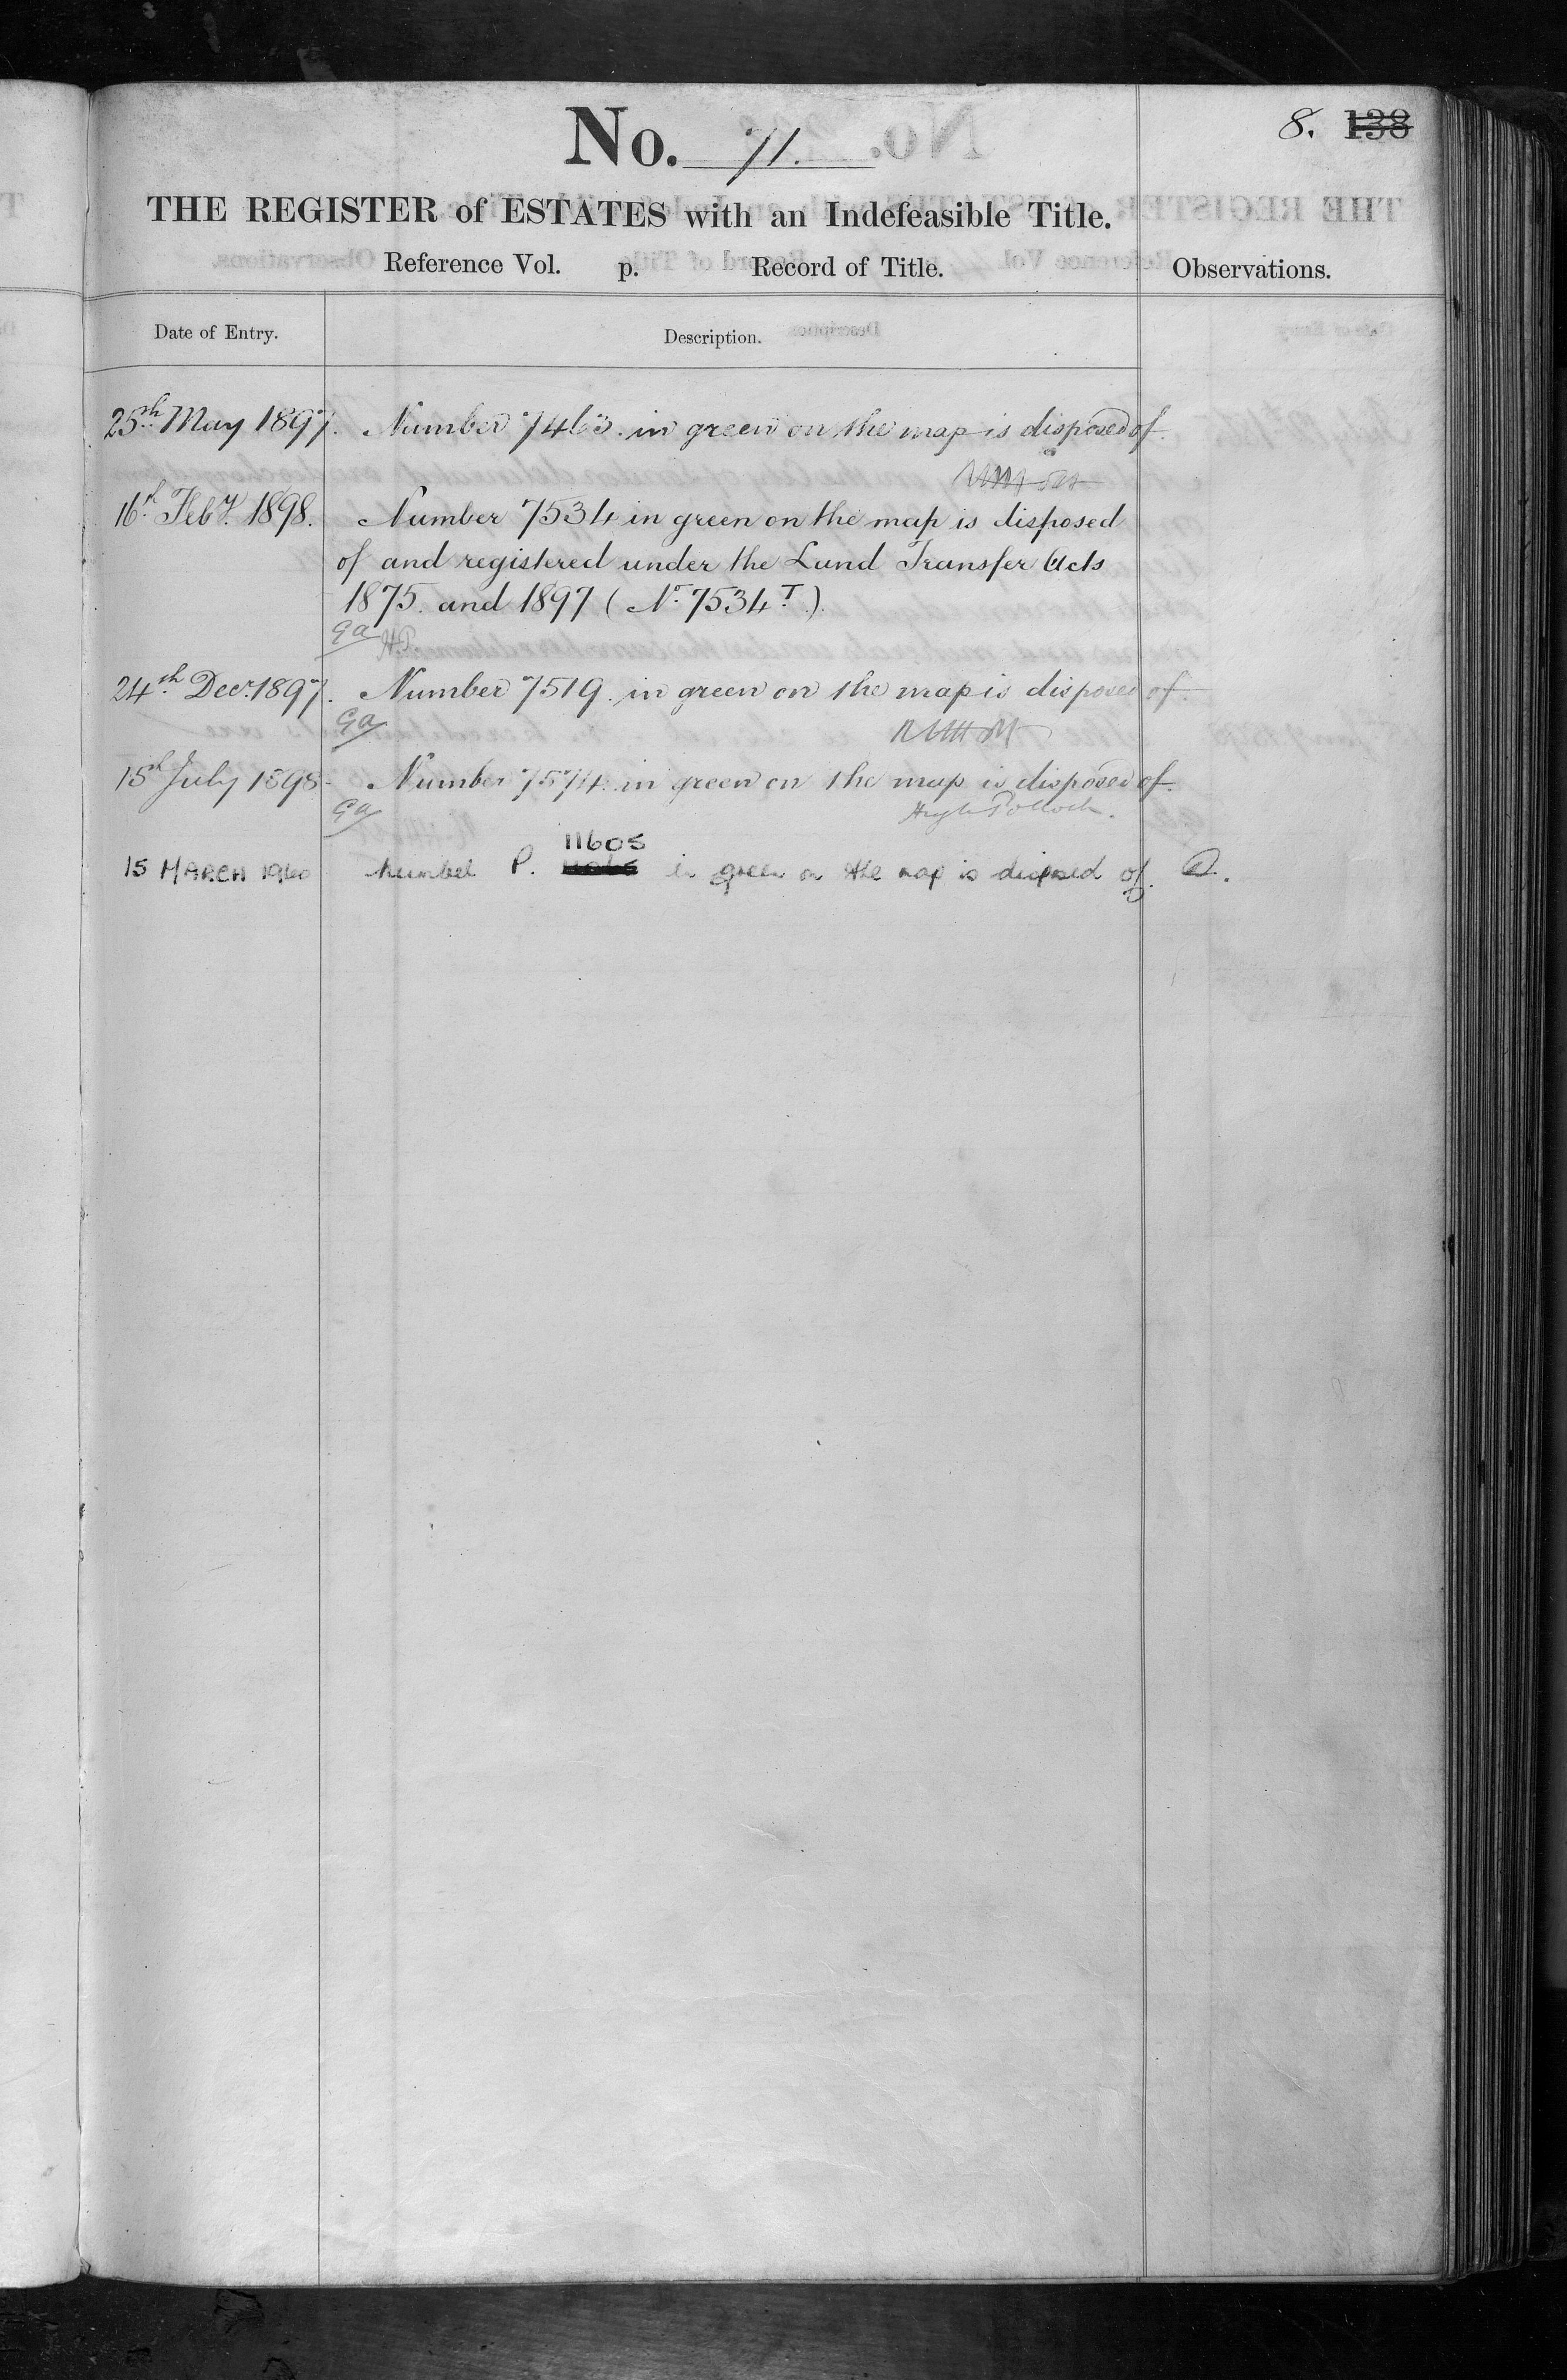 8. 138
No. 71.
THE REGISTER of ESTATES with an Indefeasible Title.
Reference Vol. p. Record of Title. Observations.
Date of Entry. Description.
25th May 1897. Number 7463 in green on the map is disposed of.
16th Feby. 1898. Number 7534 in green on the map is disposed
of and registered under the Land Transfer Acts
1875 and 1897 (No. 7534 T.)
Ga
H.P.
24th Decr. 1897. Number 7519 in green on the map is disposed of.
Ga
15th July 1898 Number 7574 in green on the map is disposed of.
Ga Hugh Pollock.
11605
15 MARCH 1960 Number P. in green on the map is disposed of.